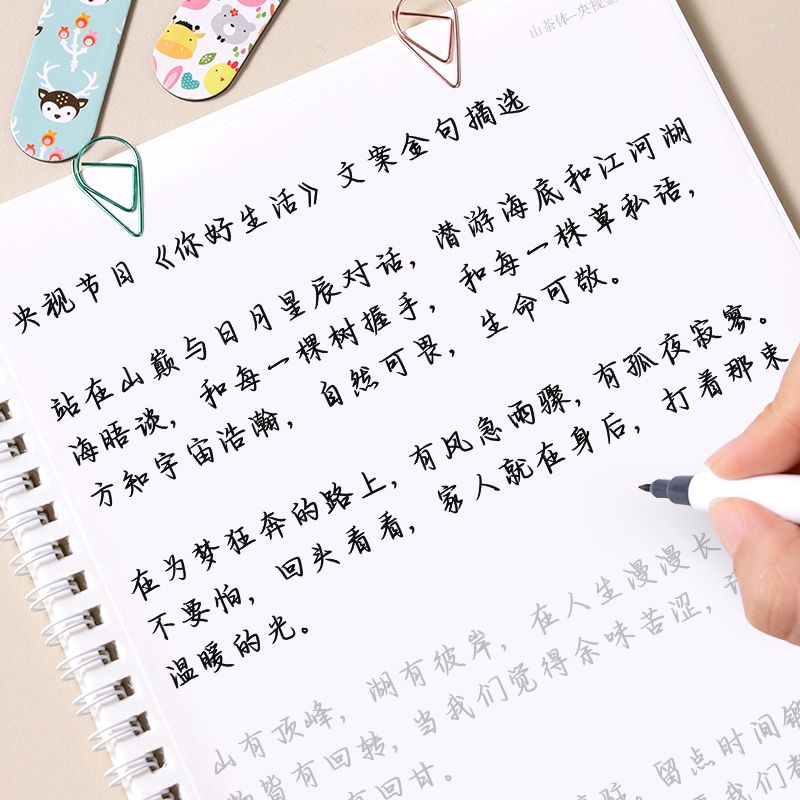 山茶体--央视
央视节目《你好生活》文案金句摘选
站在山巅与日月星辰对话，潜游海底和江河湖
海晤谈，和每一棵树握手，和每一株草私语，
方知宇宙浩瀚，自然可畏，生命可敬。
在为梦狂奔的路上，有风急雨骤，有孤夜寂寥。
不要怕，回头看看，家人就在身后，打着那束
温暖的光。
山有顶峰，湖有彼岸，在人生漫漫长
物皆有回转，当我们觉得余味苦涩，
有回甘。
留点时间